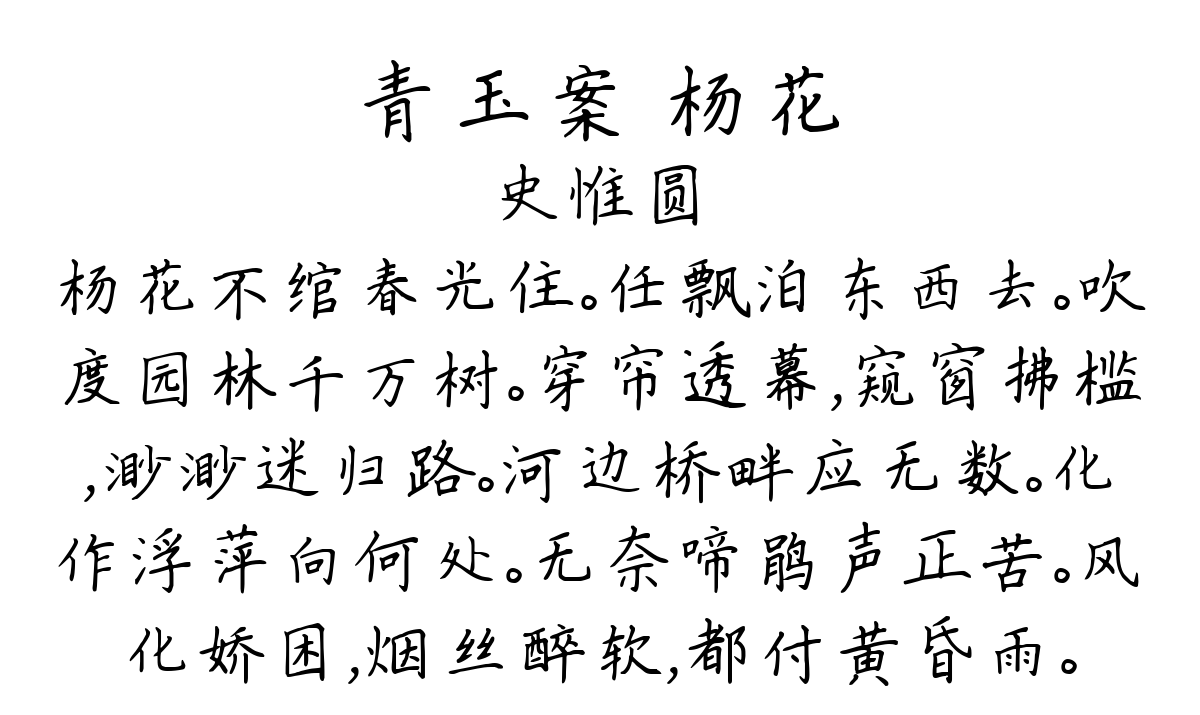 青玉案 杨花
史惟圆
杨花不绾春光住。任飘泊东西去。吹
度园林千万树。穿帘透幕,窥窗拂槛
,渺渺迷归路。河边桥畔应无数。化
作浮萍向何处。无奈啼鹃声正苦。风
化娇困,烟丝醉软,都付黄昏雨。